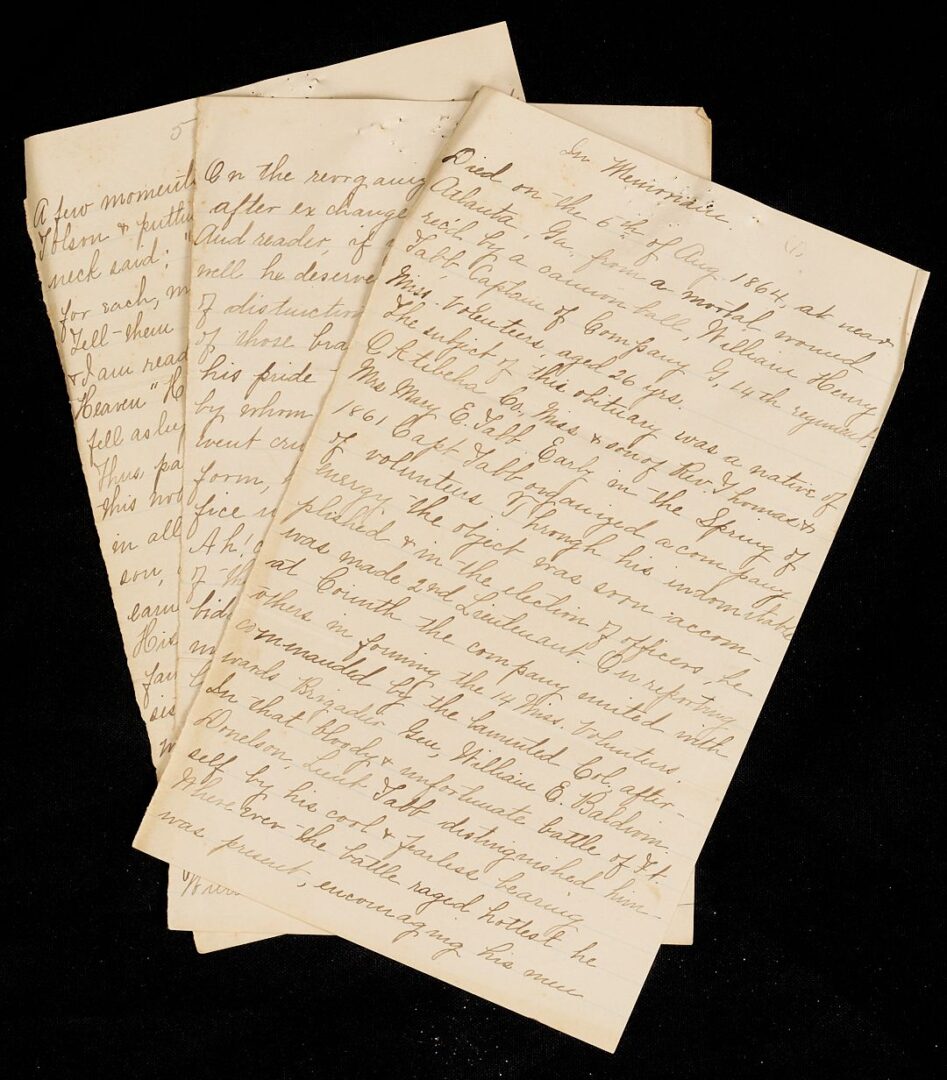 In Memoriam.
(1)
Died on the 6th of Aug. 1864, at near
Atlanta, Ga. from a mortal wound
rec'd by a cannon ball, William Henry
Tabb Captain of Company G, 14th regiment
Miss. Volunteers, aged 26 yrs.
The subject of this obituary was a native of
Oktibeha Co, Miss. & son of Rev. Thomas &
Mrs Mary E. Tabb. Early in the Spring of
1861 Capt Tabb organized a company
of volunteers. Through his indomitable
energy the object was soon accom-
plished & in the election of officers, he
was made 2nd Lieutenant. On reporting
at Corinth the company united with
others in forming the 14 Miss. Volunters.
commanded by the lamented Col, after-
wards Brigadier Gen, William E. Baldwin.
In that bloody & unfortunate battle of Ft.
Donelson, Lieut Tabb distinguished him-
self by his cool & fearless bearing
Where ever the battle raged hottest he
was present, encouraging his men
On the reorganiz
after exchange
And reader, if
well he deserve
of distinction
of those bra
his pride
by whom
went cru
form,
fice
Ah!
of th
bid
5
A few moments
Tolson & puttin
neck said: "
for each, m
Tell them
& I am read
Heaven" H
fell asleep
Thus, pa
this nob
in all
son,
earn
His
fai
sis